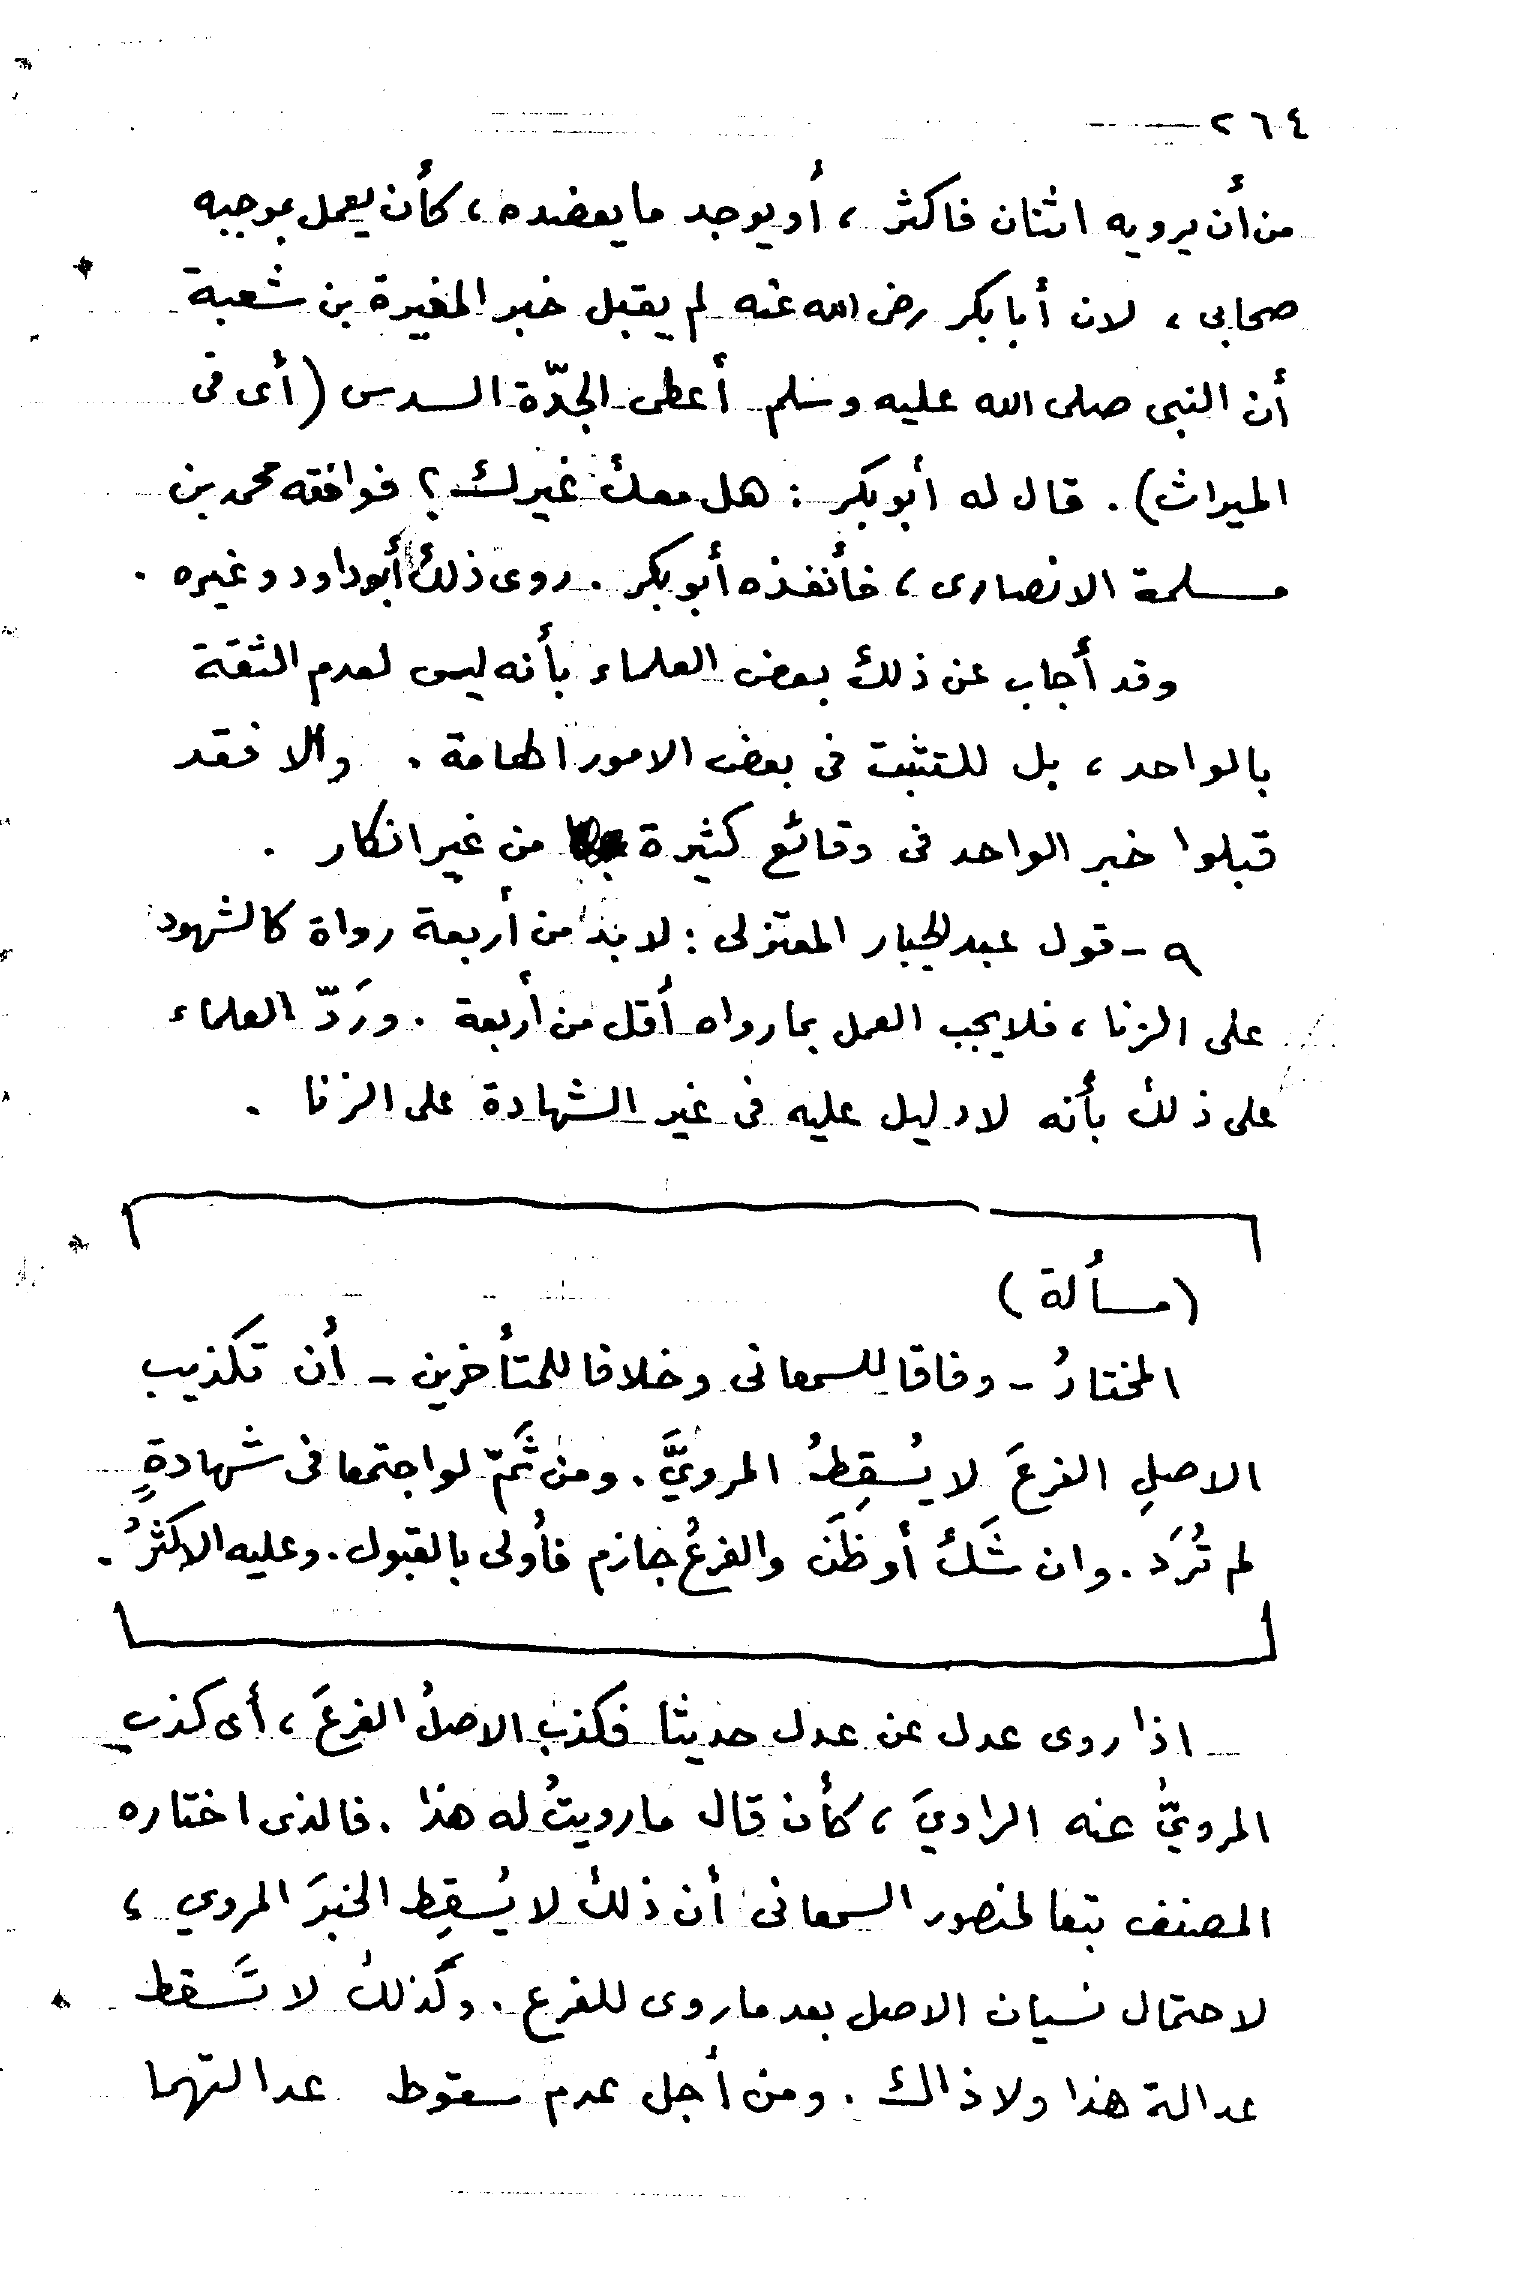 ٢٦٤
من أن يرويه اثنان فاكثر ، أو يوجد ما يعضده ، كأن يعمل بموجبه
صحابى ، لان أبا بكر رضى الله عنه لم يقبل خبر المغيرة بن شعبة
أن النبى صلى الله عليه وسلم أعطى الجدّة السدس ( أى فى
الميراث ) . قال له أبو بكر : هل معك غيرك ؟ فوافقه محمد بن
مسلمة الانصارى ، فأنفذه أبو بكر . روى ذلك أبو داود وغيره .
وقد أجاب عن ذلك بعض العلماء بأنه ليس لعدم الثقة
بالواحد ، بل للتثبت فى بعض الامور الهامة . والا فقد
قبلوا خبر الواحد فى وقائع كثيرة من غير انكار .
٩ - قول عبد الجبار المعتزلى : لا بد من أربعة رواة كالشهود
على الزنا ، فلا يجب العمل بما رواه أقل من أربعة . ورَدّ العلماء
على ذلك بأنه لا دليل عليه فى غير الشهادة على الزنا .
( مسألة )
المختارُ - وفاقا للسمعانى وخلافا للمتأخرين - أن تكذيب
الاصلِ الفرعَ لا يُسقِطُ المرويَّ . ومن ثَمّ لو اجتمعا فى شهادةٍ
لم تُرَد . وان شَكَّ أو ظَنَ والفرعُ جازم فأولى بالقبول . وعليه الاكثرُ .
اذا روى عدل عن عدل حديثا فكذب الاصلُ الفرعَ ، أى كذب
المرويُّ عنه الراويَ ، كأن قال ما رويتُ له هذا . فالذى اختاره
المصنف تبعا لمنصور السمعانى أن ذلك لا يُسقِط الخبرَ المروي ،
لاحتمال نسيان الاصل بعد ما روى للفرع . وكذلك لا تَسقط
عدالة هذا ولا ذاك . ومن أجل عدم سقوط عدالتهما